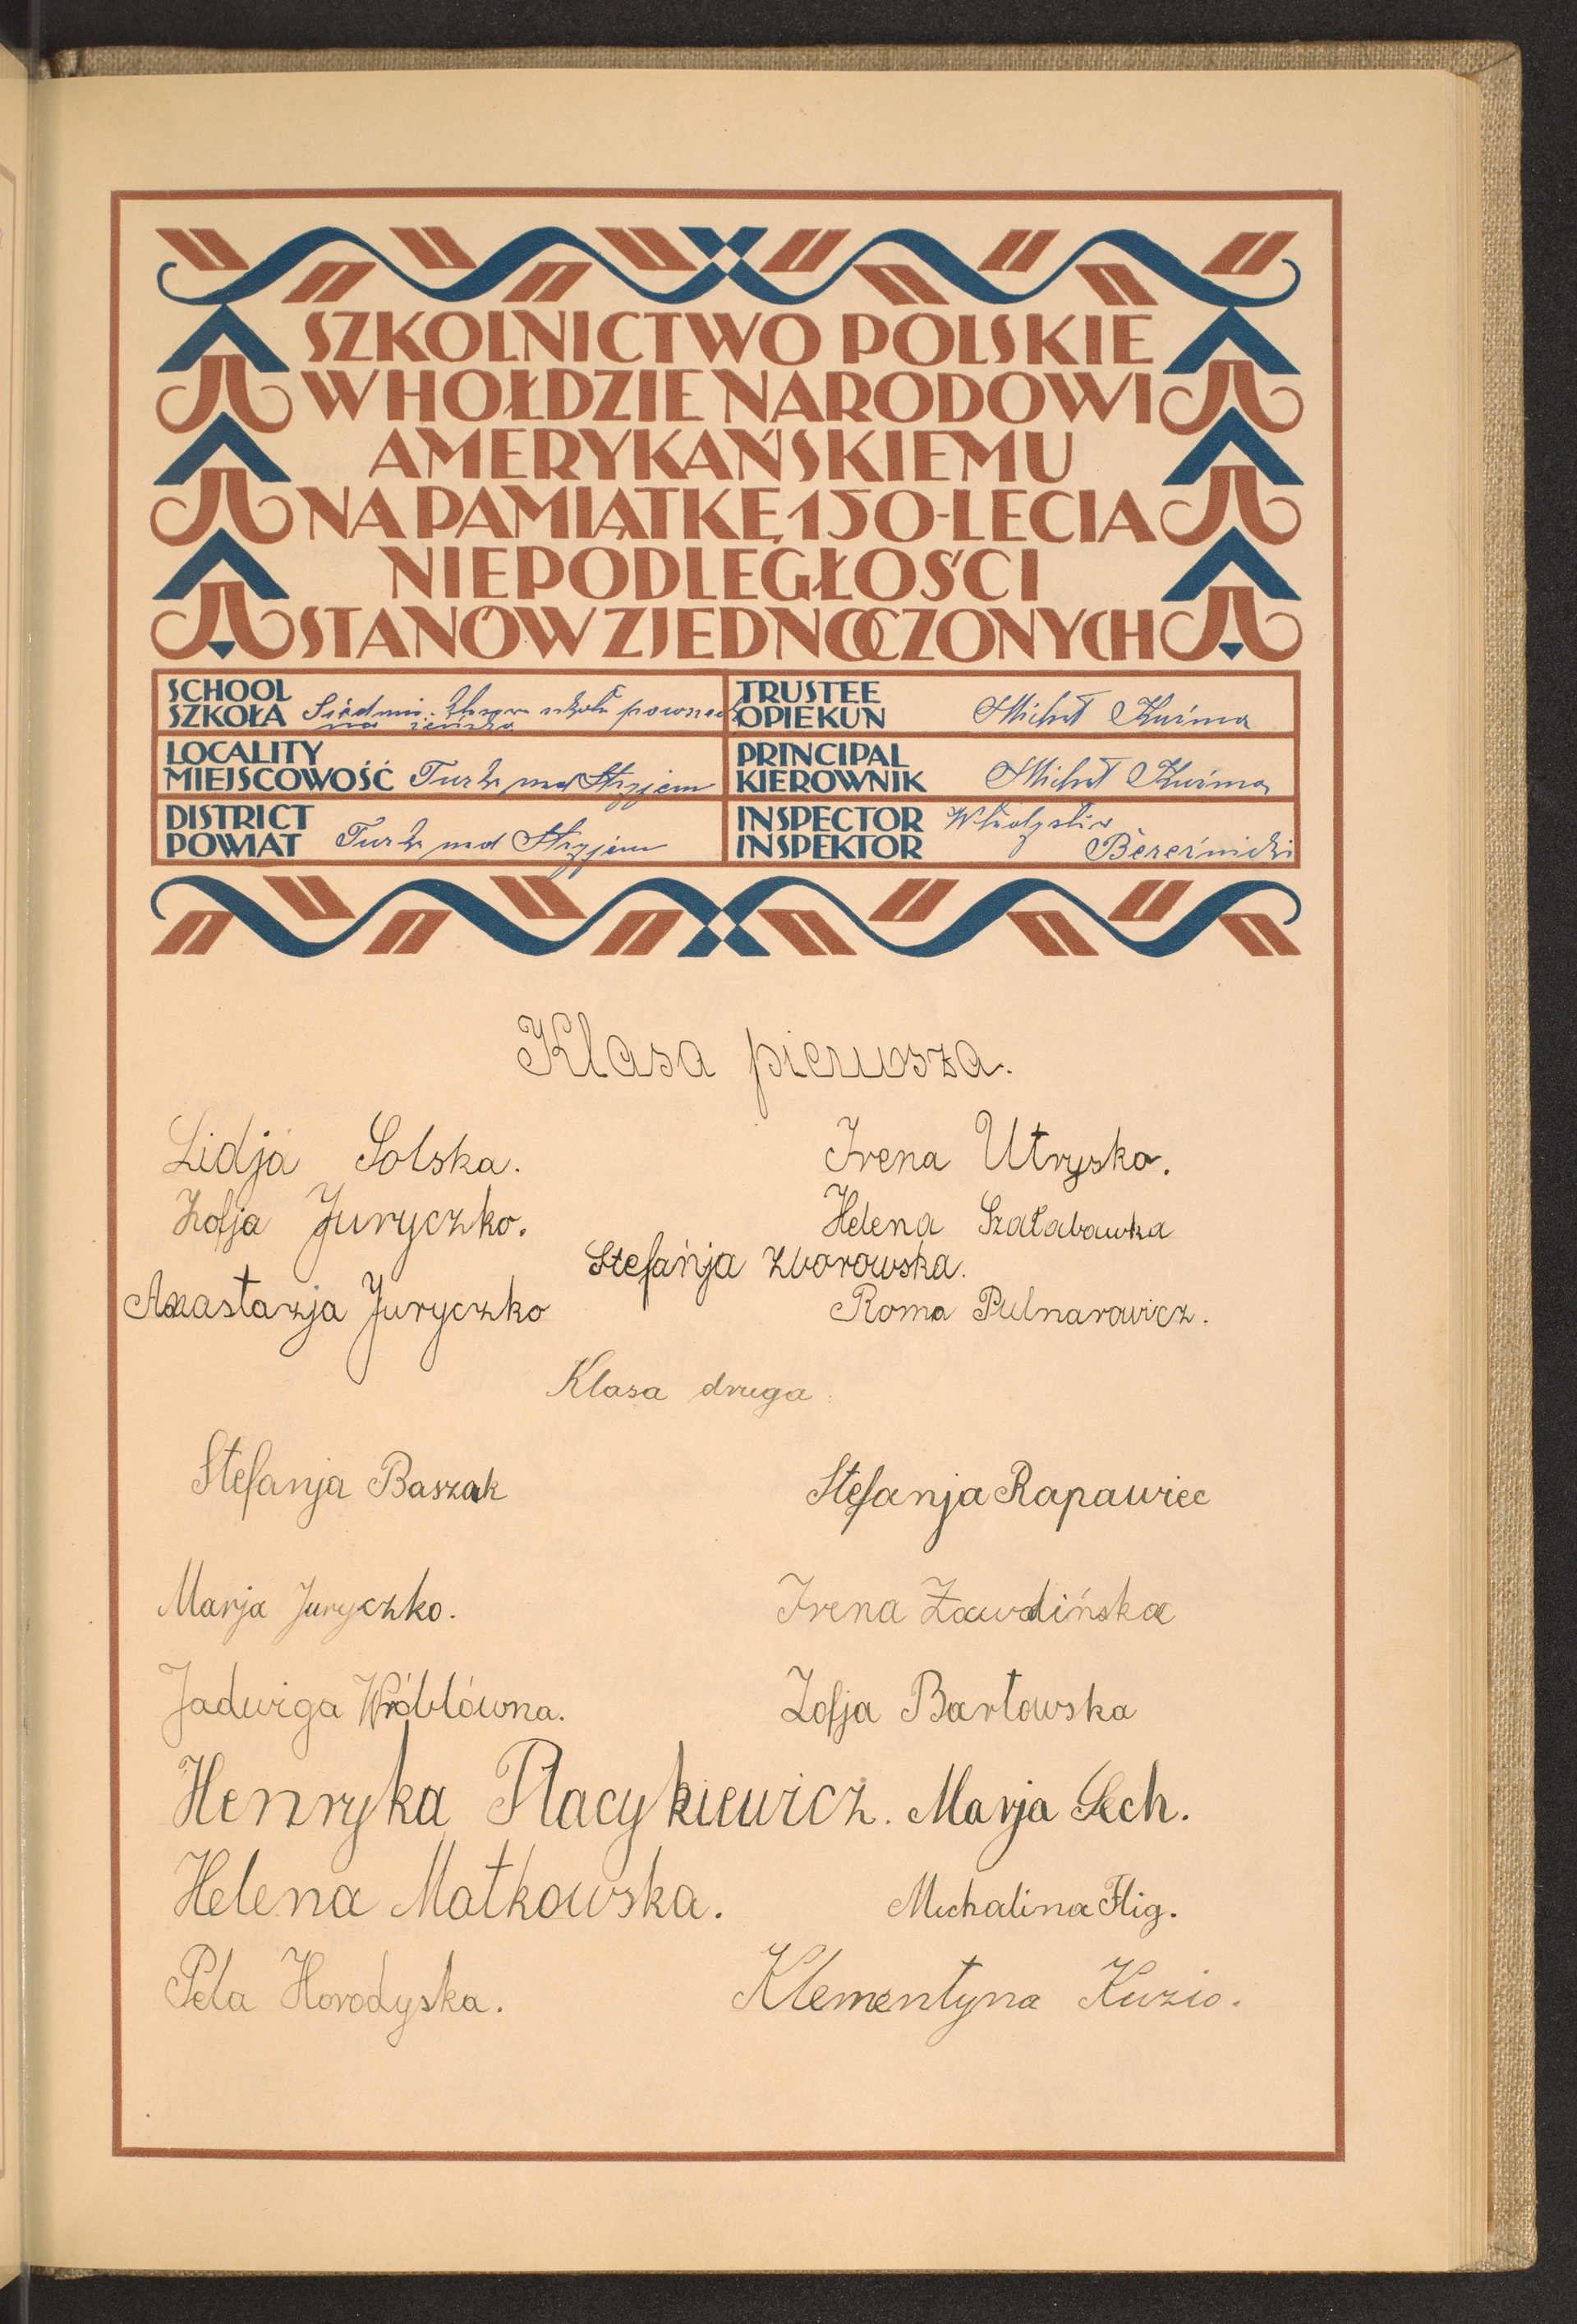 SZKOLNICTWO POLSKIE
W HOŁDZIE NARODOWI
AMERYKAŃSKIEMU
NA PAMIĄTKĘ 150-LECIA
NIEPODLEGŁOŚCI
STANÓW ZJEDNOCZONYCH
SCHOOL
SZKOŁA Siedmio klasowa szkoła powszech
na żeńska
TRUSTEE
OPIEKUN Michał Kuśma
LOCALITY
MIEJSCOWOŚĆ Turka nad Stryjem
PRINCIPAL
KIEROWNIK Michał Kuśma
DISTRICT
POWIAT Turka nad Stryjem
INSPECTOR Władysław
INSPEKTOR Bereźnicki
Klasa pierwsza.
Lidja Solska. Irena Utrysko.
Zofja Juryczko. Helena Szałabawka
Stefańja Zborowska.
Anastazja Juryczko Roma Pulnarowicz.
Klasa druga
Stefanja Baszak Stefanja Rapawiec
Marja Juryczko. Irena Zawadińska
Jadwiga Wróblówna. Zofja Bartowska
Henryka Placykiewicz. Marja Lech.
Helena Matkowska. Michalina Flig.
Pela Horodyska. Klementyna Kuzio.